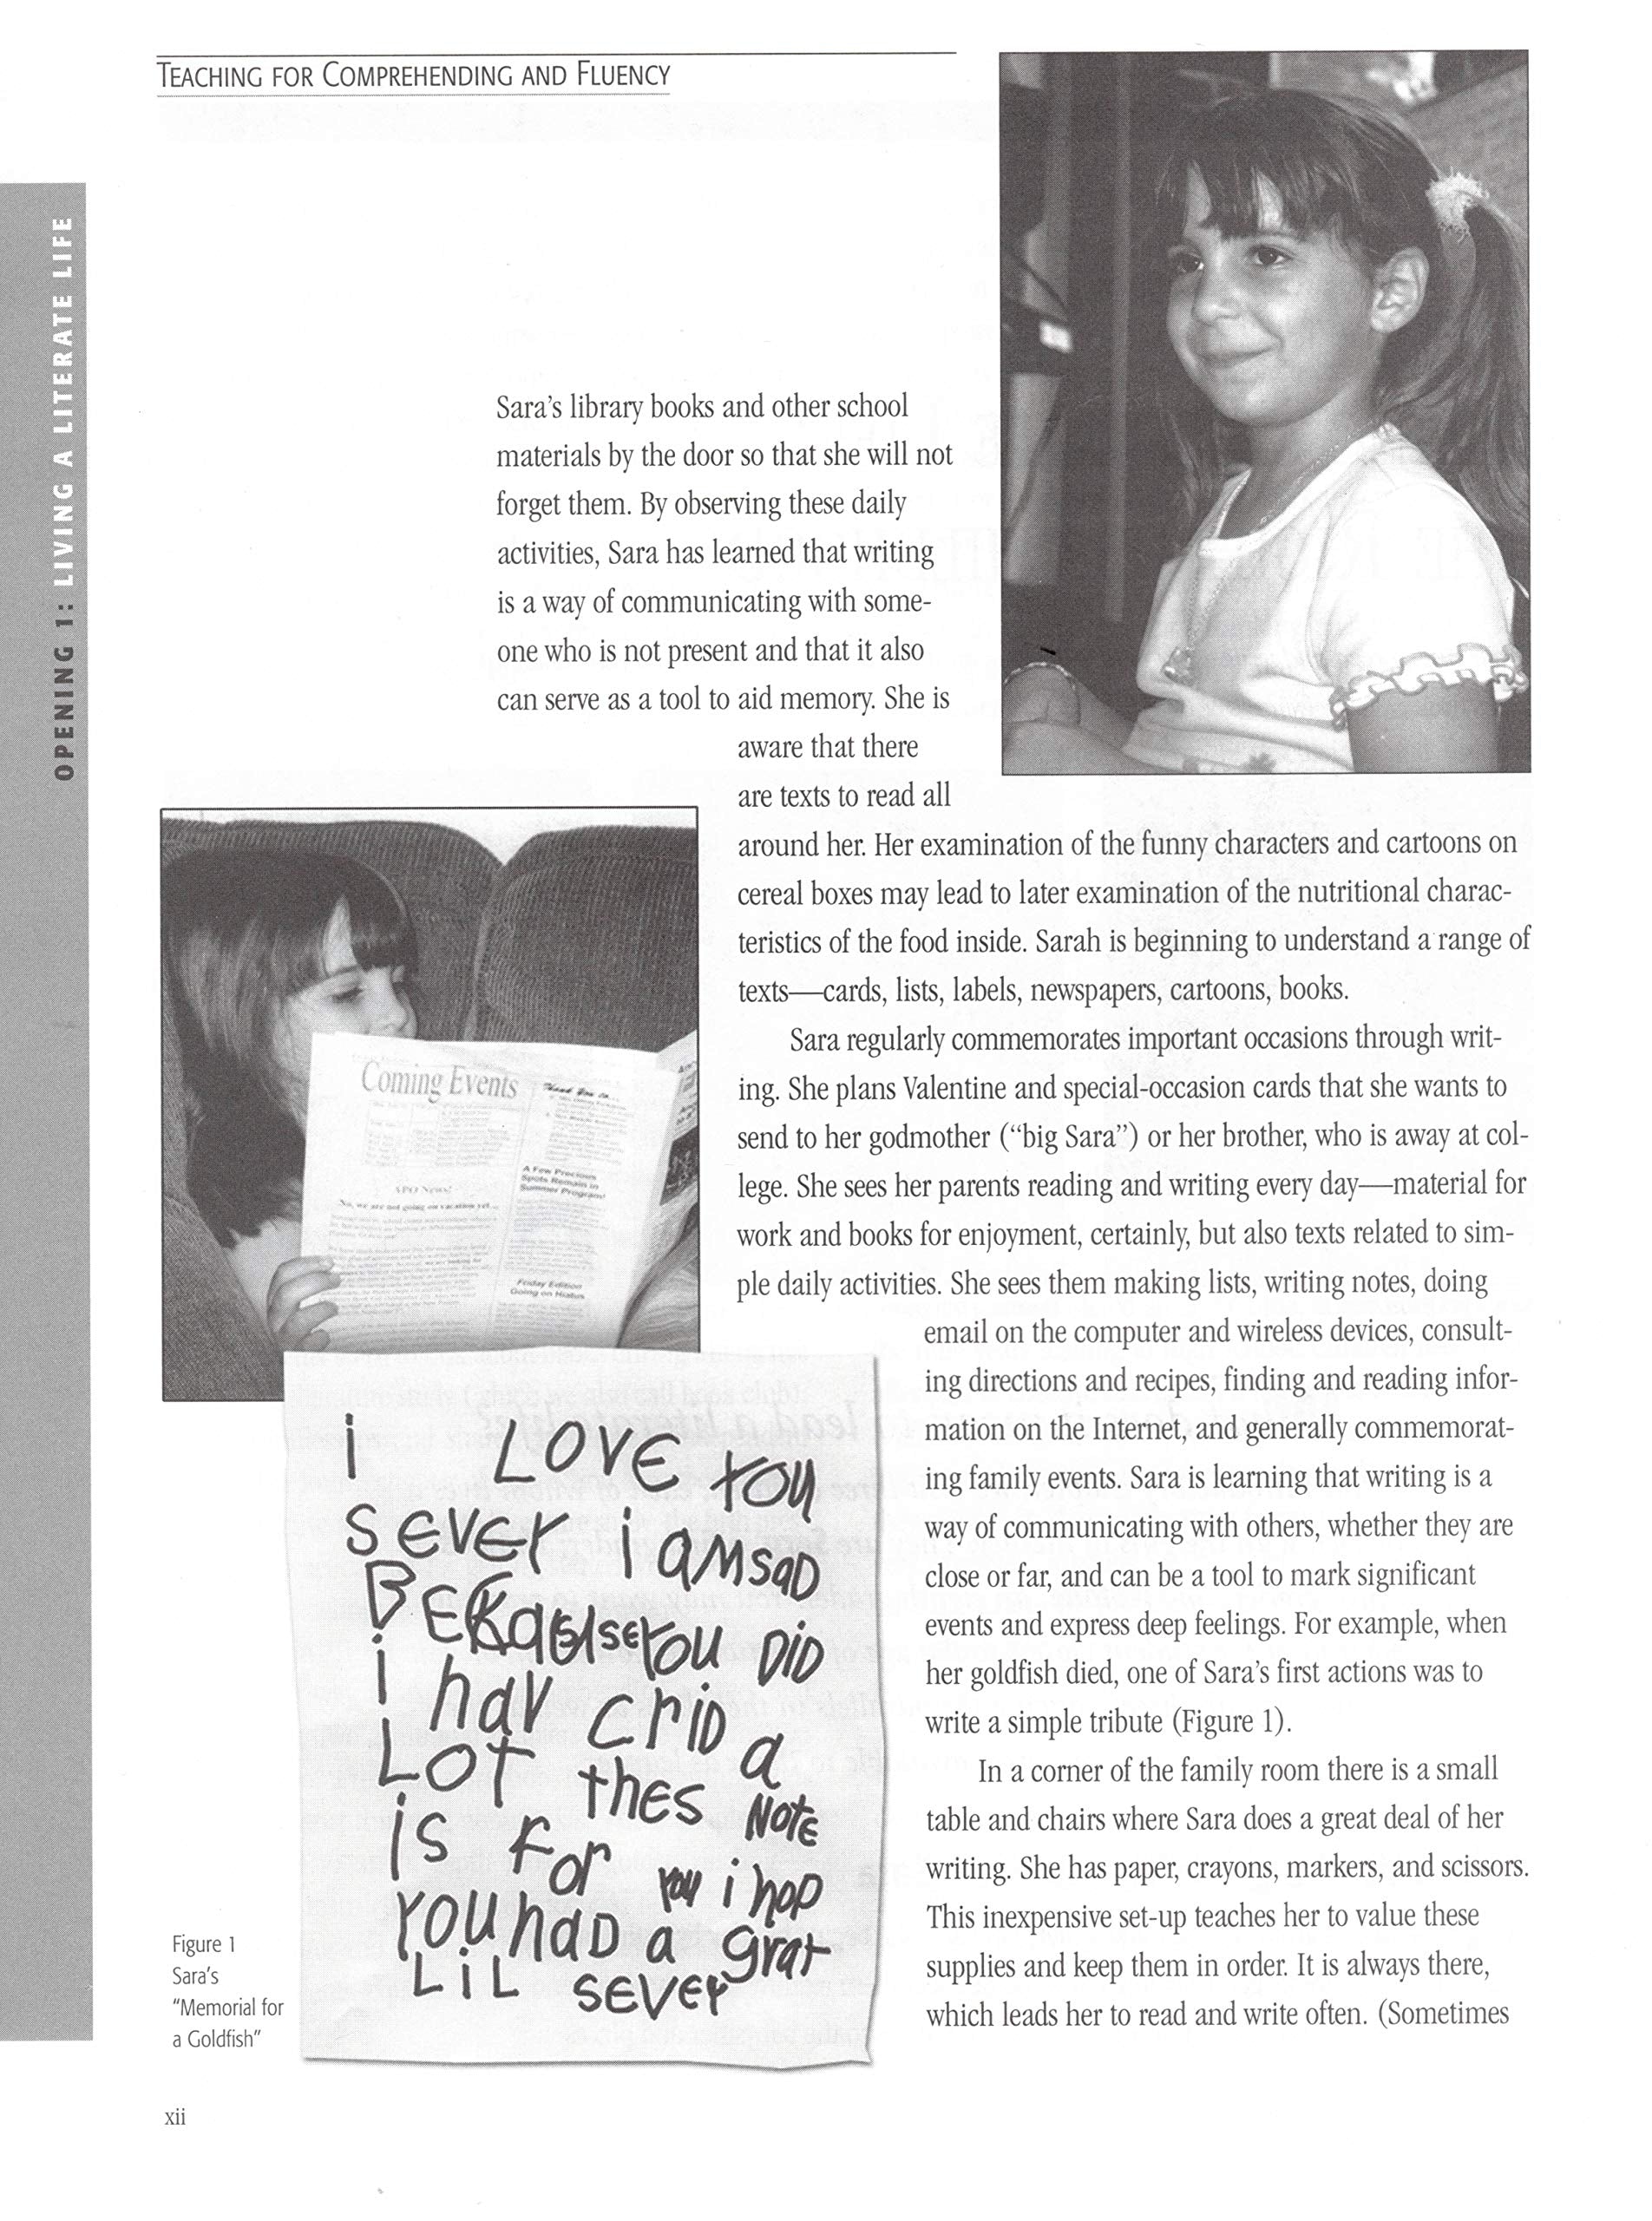 TEACHING FOR COMPREHENDING AND FLUENCY
OPENING 1: LIVING A LITERATE LIFE
Sara's library books and other school
materials by the door so that she will not
forget them. By observing these daily
activities, Sara has learned that writing
is a way of communicating with some-
one who is not present and that it also
can serve as a tool to aid memory. She is
aware that there
are texts to read all
around her. Her examination of the funny characters and cartoons on
cereal boxes may lead to later examination of the nutritional charac-
teristics of the food inside. Sarah is beginning to understand a range of
texts—cards, lists, labels, newspapers, cartoons, books.
Sara regularly commemorates important occasions through writ-
ing. She plans Valentine and special-occasion cards that she wants to
send to her godmother ("big Sara") or her brother, who is away at col-
lege. She sees her parents reading and writing every day—material for
work and books for enjoyment, certainly, but also texts related to sim-
ple daily activities. She sees them making lists, writing notes, doing
email on the computer and wireless devices, consult-
ing directions and recipes, finding and reading infor-
mation on the Internet, and generally commemorat-
ing family events. Sara is learning that writing is a
way of communicating with others, whether they are
close or far, and can be a tool to mark significant
events and express deep feelings. For example, when
her goldfish died, one of Sara's first actions was to
write a simple tribute (Figure 1).
In a corner of the family room there is a small
table and chairs where Sara does a great deal of her
writing. She has paper, crayons, markers, and scissors.
This inexpensive set-up teaches her to value these
supplies and keep them in order. It is always there,
which leads her to read and write often. (Sometimes
Coming Events
Thank You to...
A Few Precious
Spots Remain in
Summer Program!
SPO News!
No, we are not going on vacation yet...
Friday Edition
Going on Hiatus
i LOVE YOU
SEVEr i AMSAD
YOU DiD
i hav criD a
LOT thes NotE
is For you i hop
YOU haD a grat
LiL SEVEr
Figure 1
Sara's
"Memorial for
a Goldfish"
xii